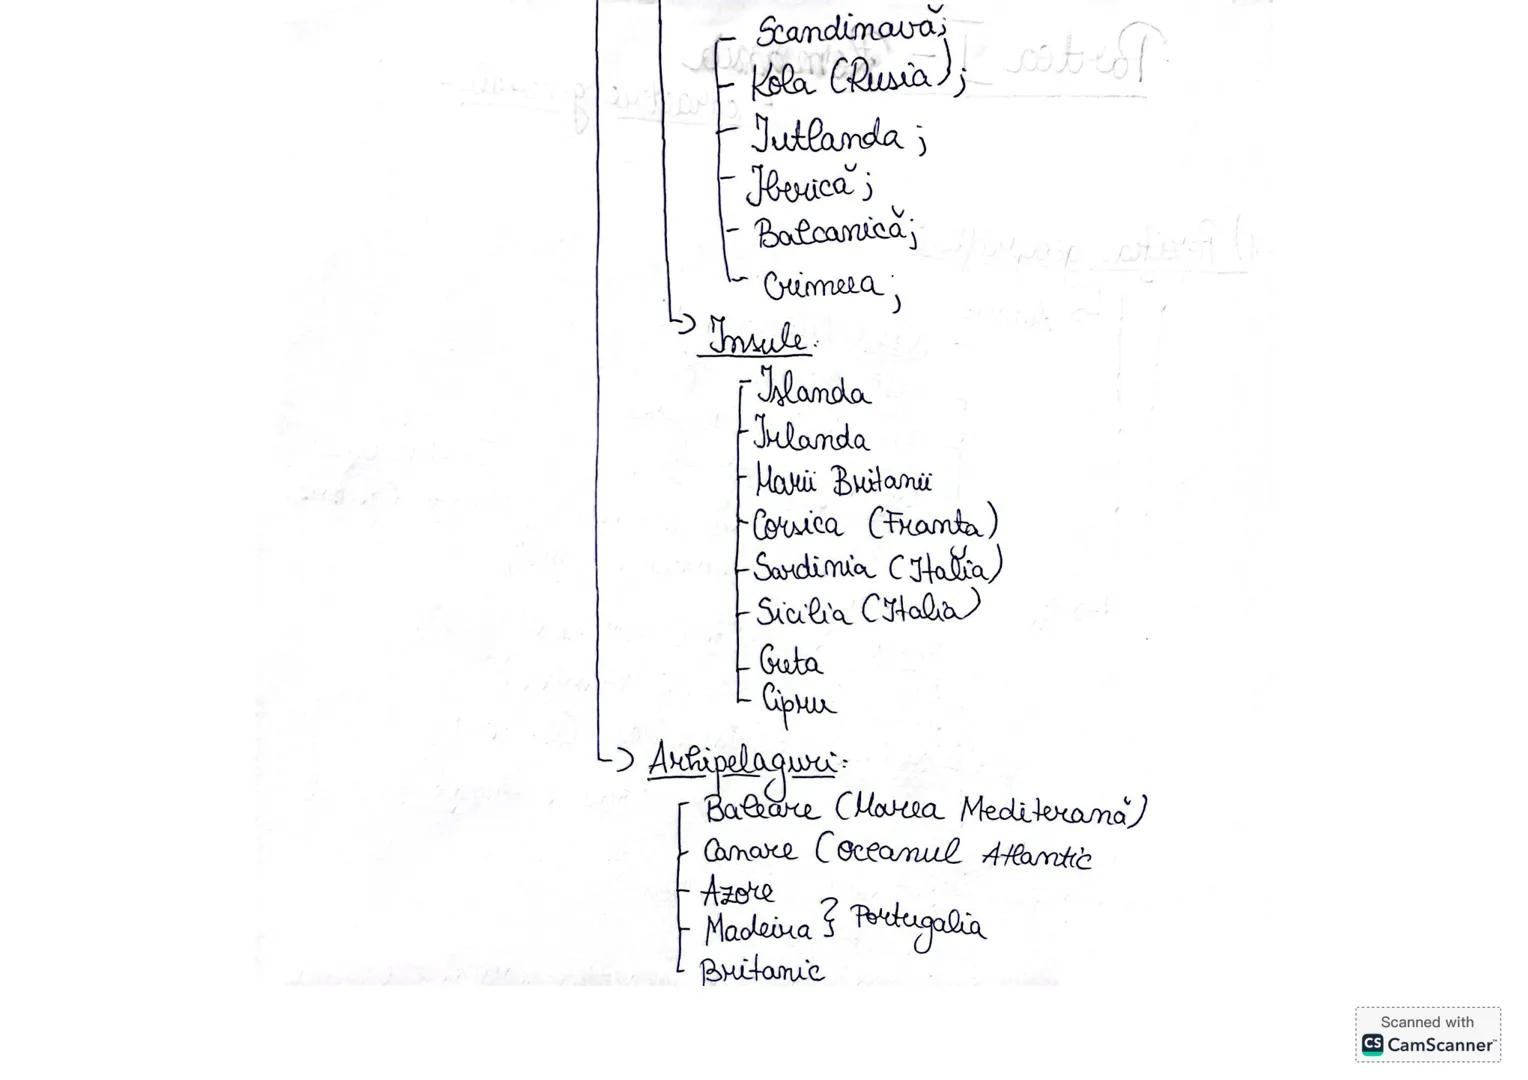 - Scandinavă;
- Kola (Rusia);
- Iutlanda;
- Iberică;
- Balcanică;
- Crimeea;
-> Insule:
- Islanda
- Irlanda
- Marii Britanii
- Corsica (Franta)
- Sardinia (Italia)
- Sicilia (Italia)
- Creta
- Cipru
-> Arhipelaguri:
Baleare (Marea Mediterană)
- Canare (Oceanul Atlantic
- Azore
- Madeira } Portugalia
- Britanic
Scanned with
CS CamScanner